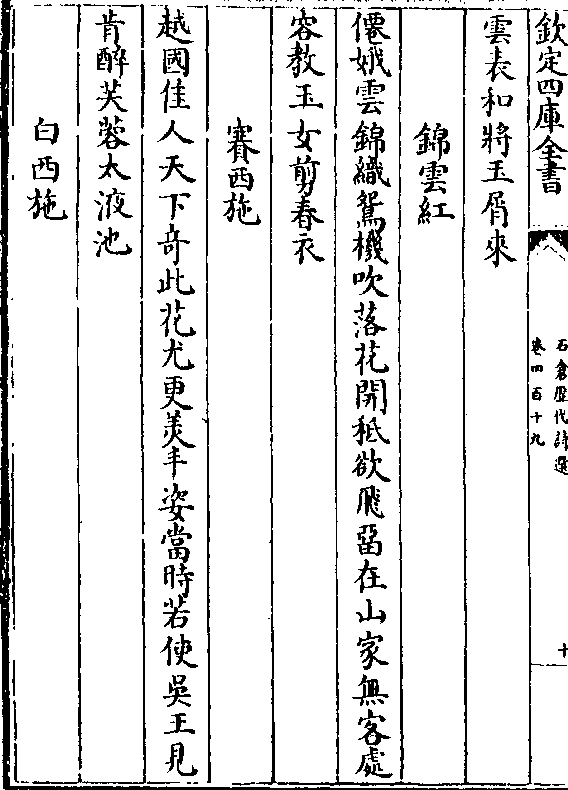 欽定四庫全書
石倉歷代詩選
卷四百十九
十
雲表和將玉屑來
錦雲紅
僊娥雲錦織鴛機吹落花開秪欲飛留在山家無客處
容教玉女剪春衣
賽西施
越國佳人天下奇此花尤更羙丰姿當時若使吳王見
肯醉芙蓉太液池
白西施